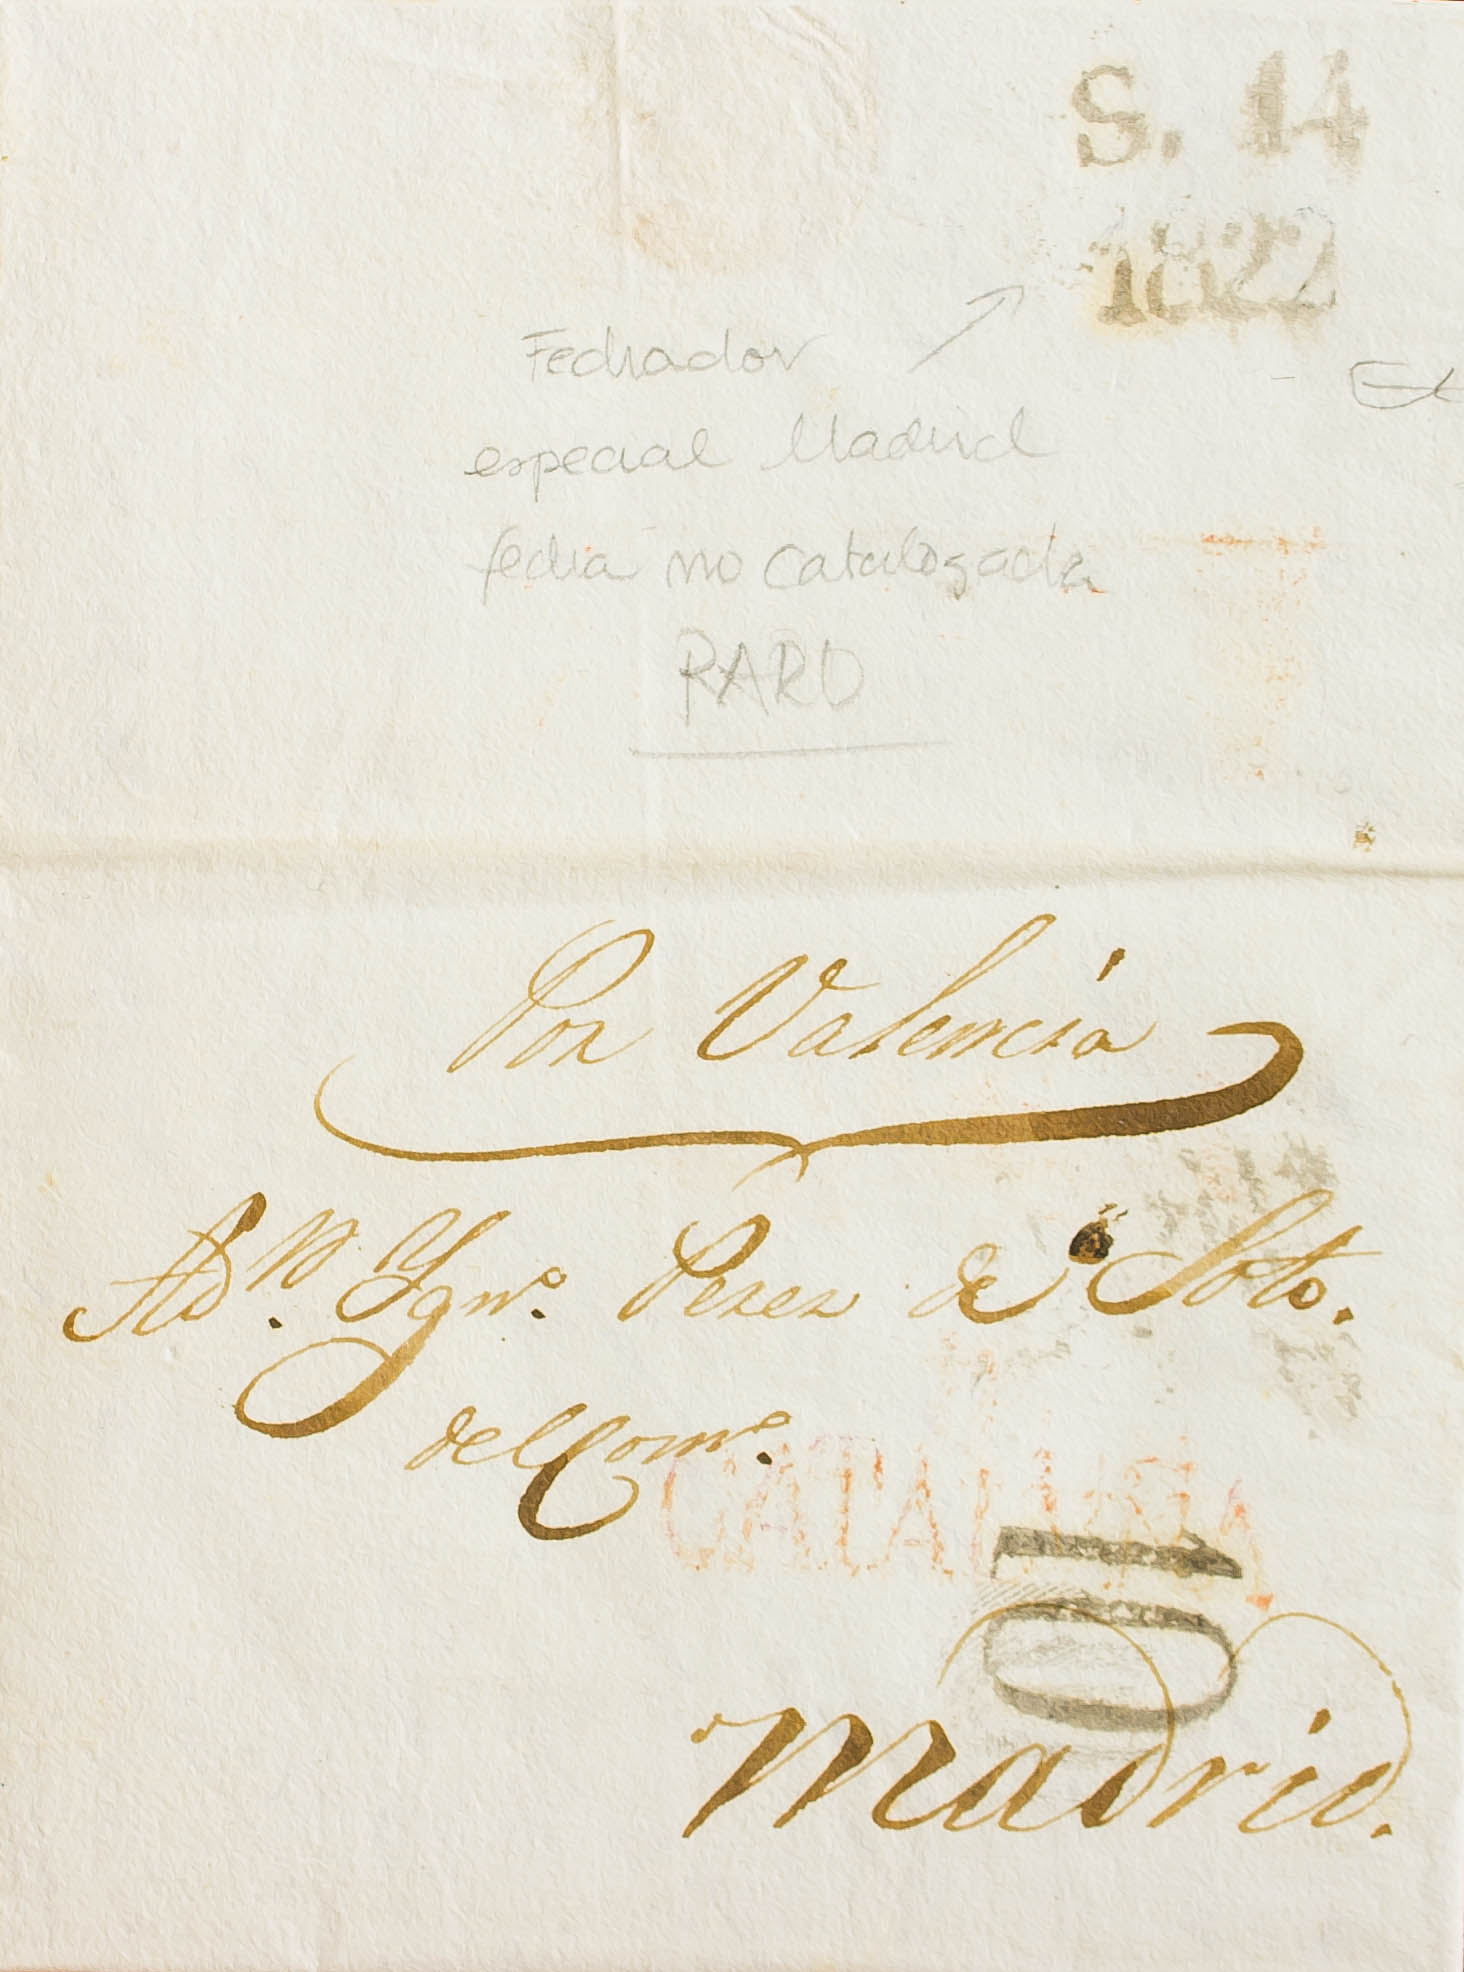 S. 14
1822
Fechador
especial Madrid
fecha no catalogada
RARO
Por Valencia
A D.n Ygn.o Perez de Soto.
del Com.o
CATALUÑA
10
Madrid.